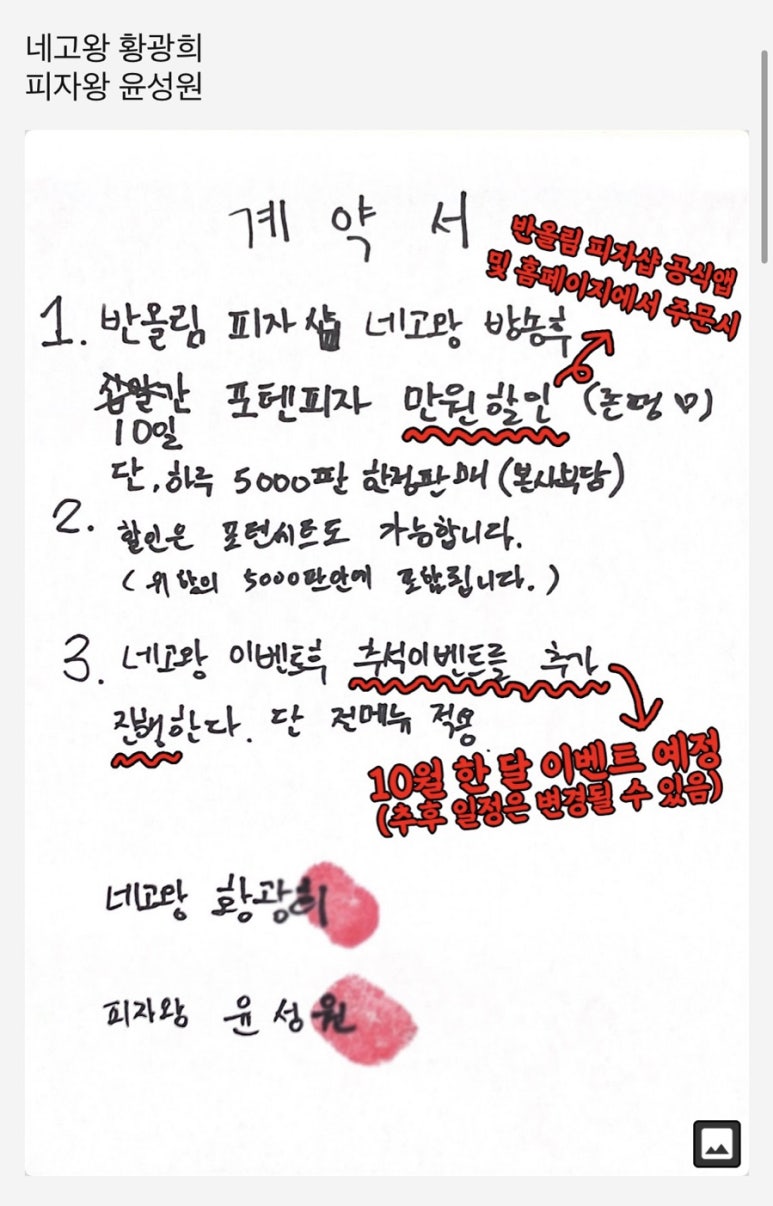 네고왕 황광희
피자왕 윤성원
계 약 서
반올림 피자샵 공식앱
및 홈페이지에서 주문시
1. 반올림 피자샵 네고왕 방송후
간 포텐피자 만원할인 (존멋 ♡)
10일
단, 하루 5000판 한정판매 (본사부담)
2. 할인은 포텐시트도 가능합니다.
(위 항의 5000판안에 포함됩니다.)
3. 네고왕 이벤트후 추석이벤트를 추가
진행한다. 단 전메뉴 적용
10월 한 달 이벤트 예정
(추후 일정은 변경될 수 있음)
네고왕 황광희
피자왕 윤성원